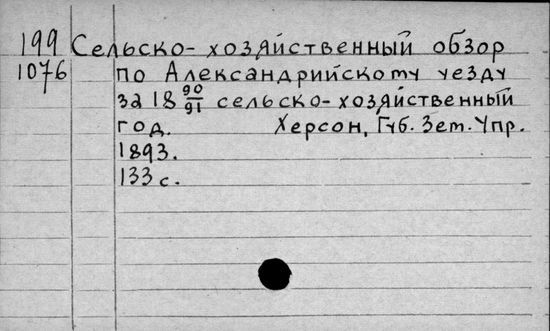 199 Сельско-хозяйственный обзор
1076 по Александрийскому уезду
за 18 90/91 сельско-хозяйственный
год. Херсон, Губ. Зем. Упр.
1893.
133 с.